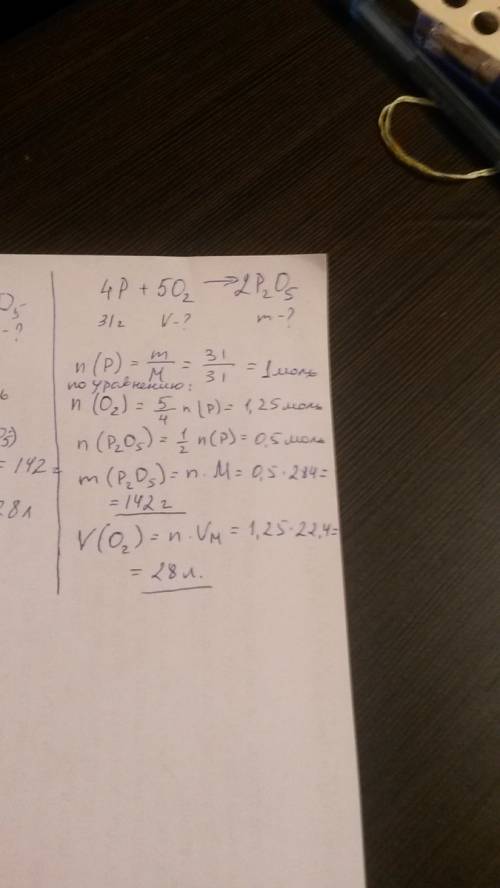 O5
-?
ь
O5)
= 142 =
28 л
4P + 5O2 → 2P2O5
31г V-? m-?
n(P) = m/M = 31/31 = 1 моль
по уравнению:
n(O2) = 5/4 n(P) = 1,25 моль
n(P2O5) = 1/2 n(P) = 0,5 моль
m(P2O5) = n · M = 0,5 · 284 =
= 142 г
V(O2) = n · VM = 1,25 · 22,4 =
= 28 л.